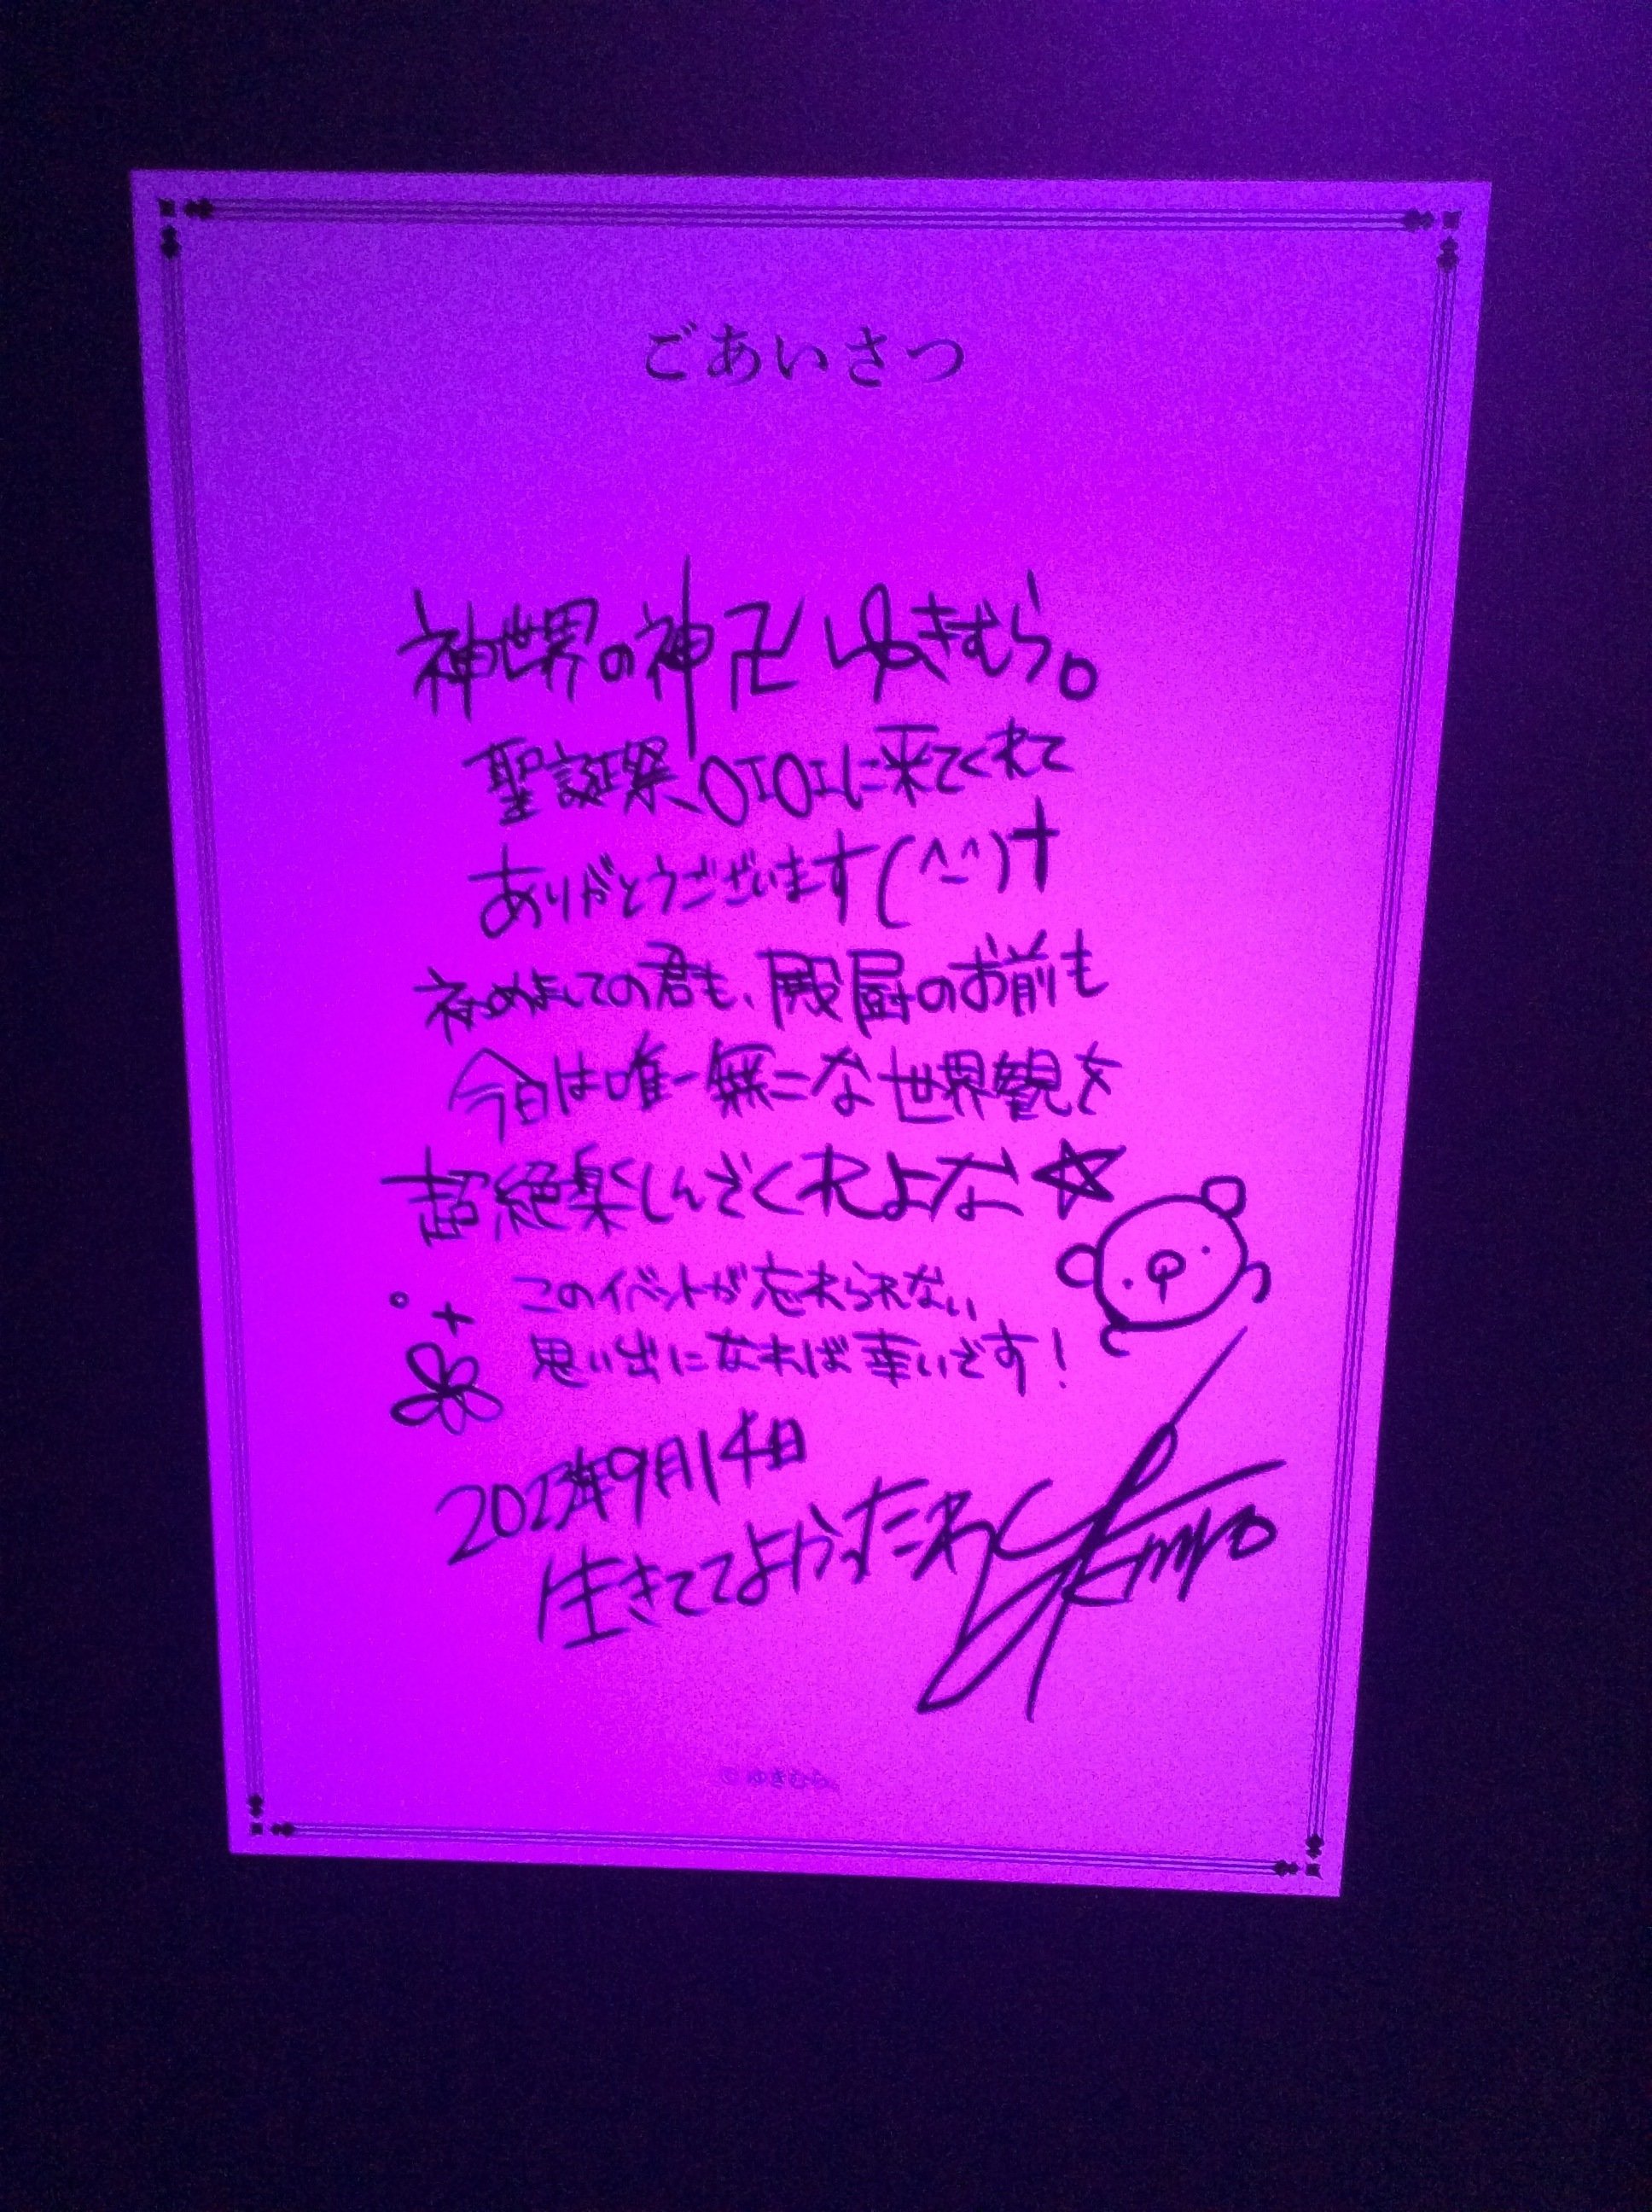 ごあいさつ
神世界の神卍ゆきむら。
聖誕祭、OIOIに来てくれて
ありがとうございます(^_^)†
初めましての君も、殿層のお前も
今日は唯一無二な世界観を
超絶楽しんでくれよな☆
このイベントが忘れられない
思い出になれば幸いです!
2023年9月14日
生きててよかったわ
©ゆきむら。